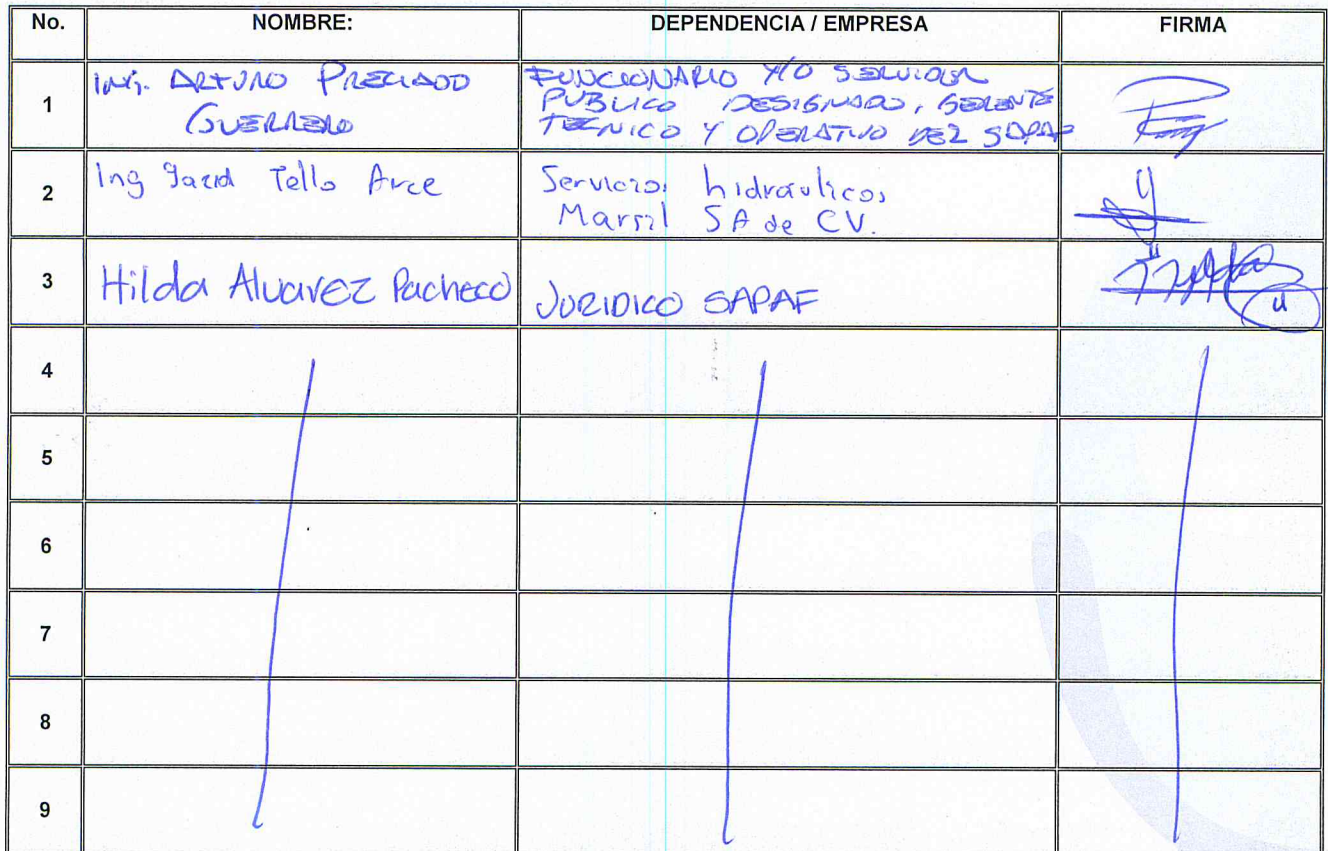 No. NOMBRE: DEPENDENCIA / EMPRESA FIRMA
1 Ing. ARTURO PRECIADO
GUERRERO
FUNCIONARIO Y/O SERVIDOR
PUBLICO DESIGNADO, GERENTE
TECNICO Y OPERATIVO DEL SAPAF
2 Ing Yazid Tello Arce
Servicios hidráulicos
Marsil SA de CV.
3 Hilda Alvarez Pacheco JURIDICO SAPAF
4
5
6
7
8
9